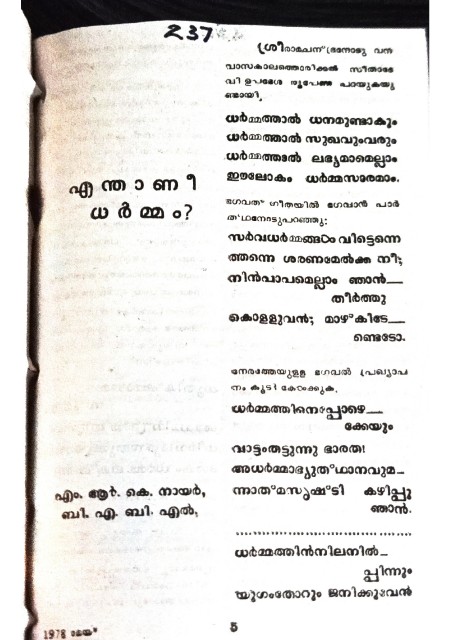 237
എന്താണീ
ധർമ്മം?
എം. ആർ. കെ. നായർ,
ബി. എ. ബി. എൽ,
ശ്രീരാമചന്ദ്രനോടു വന
വാസകാലത്തൊരിക്കൽ സീതാദേ
വി ഉപദേശ രൂപേണ പറയുകയു
ണ്ടായി,
ധർമ്മത്താൽ ധനമുണ്ടാകും
ധർമ്മത്താൽ സുഖവുംവരും
ധർമ്മത്താൽ ലഭ്യമാമെല്ലാം
ഈലോകം ധർമ്മസാരമാം.
ഭഗവത് ഗീതയിൽ ഭഗവാൻ പാർ
ത്ഥനോടുപറഞ്ഞു:
സർവധർമ്മങ്ങളും വിട്ടെന്നെ
ത്തന്നെ ശരണമേൽക്ക നീ;
നിൻപാപമെല്ലാം ഞാൻ—
തീർത്തു
കൊള്ളുവൻ; മാഴ്കിടേ—
ണ്ടെടോ.
നേരത്തേയുള്ള ഭഗവൽ പ്രഖ്യാപ
നം കൂടി കേൾക്കുക.
ധർമ്മത്തിനെപ്പൊഴെ—
ക്കേയും
വാട്ടംതട്ടുന്നു ഭാരത!
അധർമ്മാഭ്യുത്ഥാനവുമ—
ന്നാത്മസൃഷ്ടി കഴിപ്പൂ
ഞാൻ.
ധർമ്മത്തിൻനിലനിൽ—
പ്പിന്നും
യുഗംതോറും ജനിക്കുവൻ
1978 മേയ്
5